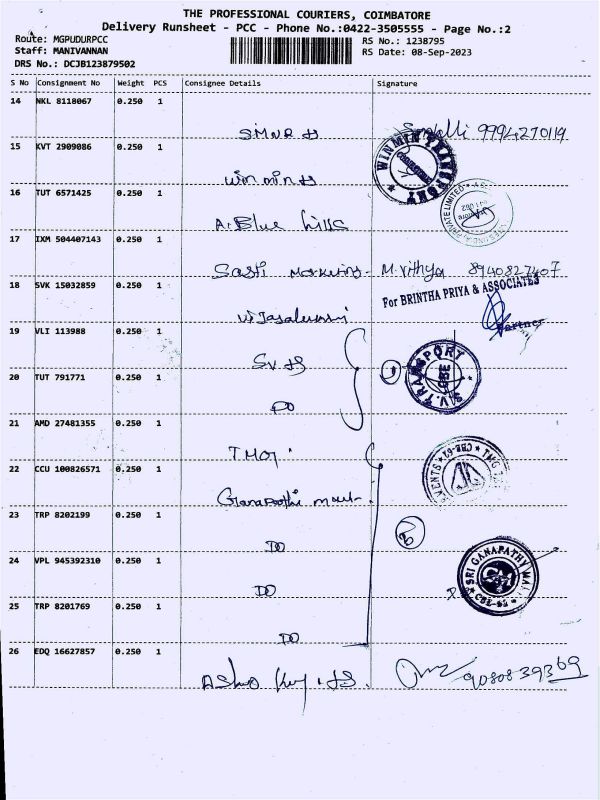 THE PROFESSIONAL COURIERS, COIMBATORE
Delivery Runsheet - PCC - Phone No.:0422-3505555 - Page No.:2
Route: MGPUDURPCC
RS No.: 1238795
Staff: MANIVANNAN
RS Date: 08-Sep-2023
DRS No.: DCJB123879502
S No Consignment No Weight PCS Consignee Details Signature
14 NKL 8118067 0.250 1
9994270119
15 KVT 2909086 0.250 1
WIN MIN TRANSPORT
win min
16 TUT 6571425 0.250 1
PRIVATE LIMITED
A. Blue hills
17 IXM 504407143 0.250 1
Sasti M. Vithya 8940827407
18 SVK 15032859 0.250 1
For BRINTHA PRIYA & ASSOCIATES
Partner
19 VLI 113988 0.250 1
S.V. TRANSPORT
CBE
SV
20 TUT 791771 0.250 1
DO
21 AMD 27481355 0.250 1
EVENTS
TMG
22 CCU 100826571 0.250 1
Ganapathi
23 TRP 8202199 0.250 1
DO
24 VPL 945392310 0.250 1
SRI GANAPATHY
DO
25 TRP 8201769 0.250 1
DO
26 EDQ 16627857 0.250 1
9080839369